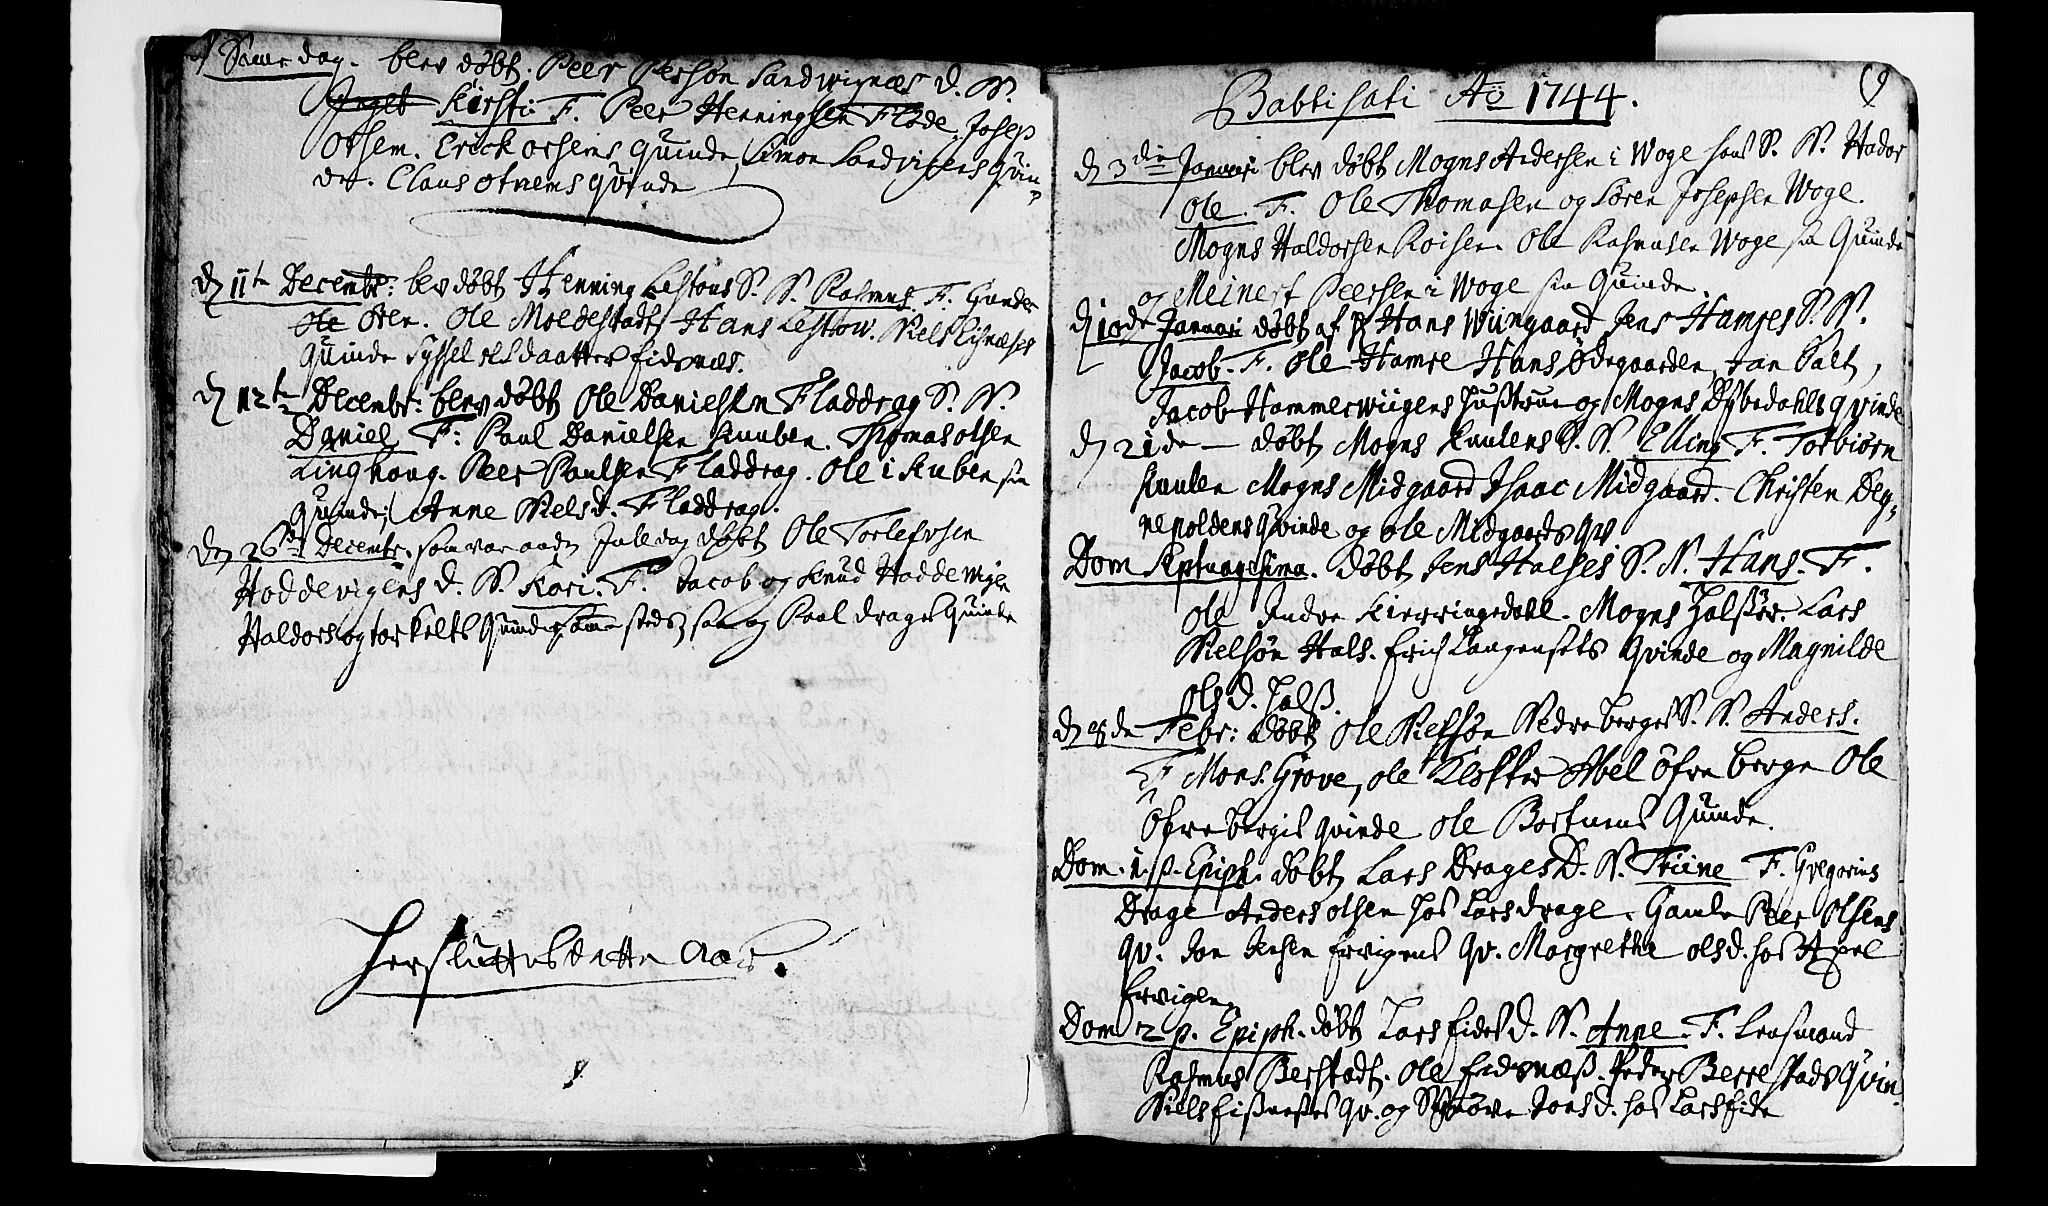 Same dag. blev døbt. Peer Persøn Sandwignæs D. N.
Inget Kirsti F. Peer Henningsen Flode. Josep
Othem. Erick othems Quinde, Simon Sandvigens Qvin-
de. Claus otnems qvinde
d 11te Decembr: blev døbt Henning Lestons S. N. Rasmus F. Gunder
Ole Sten. Ole Moldestadt Hans Lestow. Niels Eisnæses
Quinde Syssel olsdaatter Eidsnæs.
d 12te Decembr: blev døbt Ole Danielsen Fladdrag S. N.
Daniel F: Paul Danielsen Knuben. Thomas olsen
Linghoug. Peer Paulsen Fladdrag. Ole i Kuben sin
Quinde, Anne Nielsd. Fladdrag.
den 26de Decembr. som var anden Juledag døbt Ole Torlefssen
Hoddevigens D. N. Kari. F. Jacob og Knud Hoddevigen
Haldors og torkelts Quinder sammesteds, saa og Paal drages Quinde
Her sluttes dette Aar.
(9
Babtisati Ao 1744.
d 3die Januari blev døbt Mogns Andersen i Woge hans S. N. Hador
Ole. F. Ole Thomasen og Søren Josephsen Woge.
Mogns Haldorsen Roisen. Ole Rasmusen Woge sin Quinde
og Meinert Peersen i Woge sin Quinde.
d 10de Januari døbt af Hans Wiingaard Jens Hamres S. N.
Jacob. F. Ole Hamre Hans Ødegaarden, Jan Balt,
Jacob Hammerwiigens Hustrue og Mogns Dybedahls qvinde
d 21de — døbt Mogns Knutens S. N. Elling F. Torbiørn
Knuten Mogns Midgaard Isaac Midgaard. Christen Deg-
nepoldens Qvinde og ole Midgaards qv
Dom Septuagesima. døbt Jens Halses S. N. Hans. F.
Ole Indre Kierringedahl. Mogns Halsør. Lars
Nielsøn Hals. Erich Langensets Qvinde og Magnilde
olsd. Halss.
d 8de Febr: døbt Ole Nielsøn Nedre berges S. N. Anders.
F. Mons. Grove, ole Klokker Abel öfre berge Ole
Öfre bergis qvinde Ole Bortnens Quinde.
Dom. 1. p. Epiph. døbt Lars Drages D. N. Triine F. Gregorius
Drage Anders olsen hos Lars drage. Gamle Peer Olsens
qv. Jon Jensen Ervigens qv. Margrethe olsd. hos Axel
Ervigen
Dom 2 p. Epiph. døbt Lars Eides D. N. Anne. F. Lensmand
Rasmus Berstadt. Ole Eidsnæss. Peder Berrestads Qvin.
Niels Eissnesses qv. og Sønnøve Jonsd. hos Lars Eide